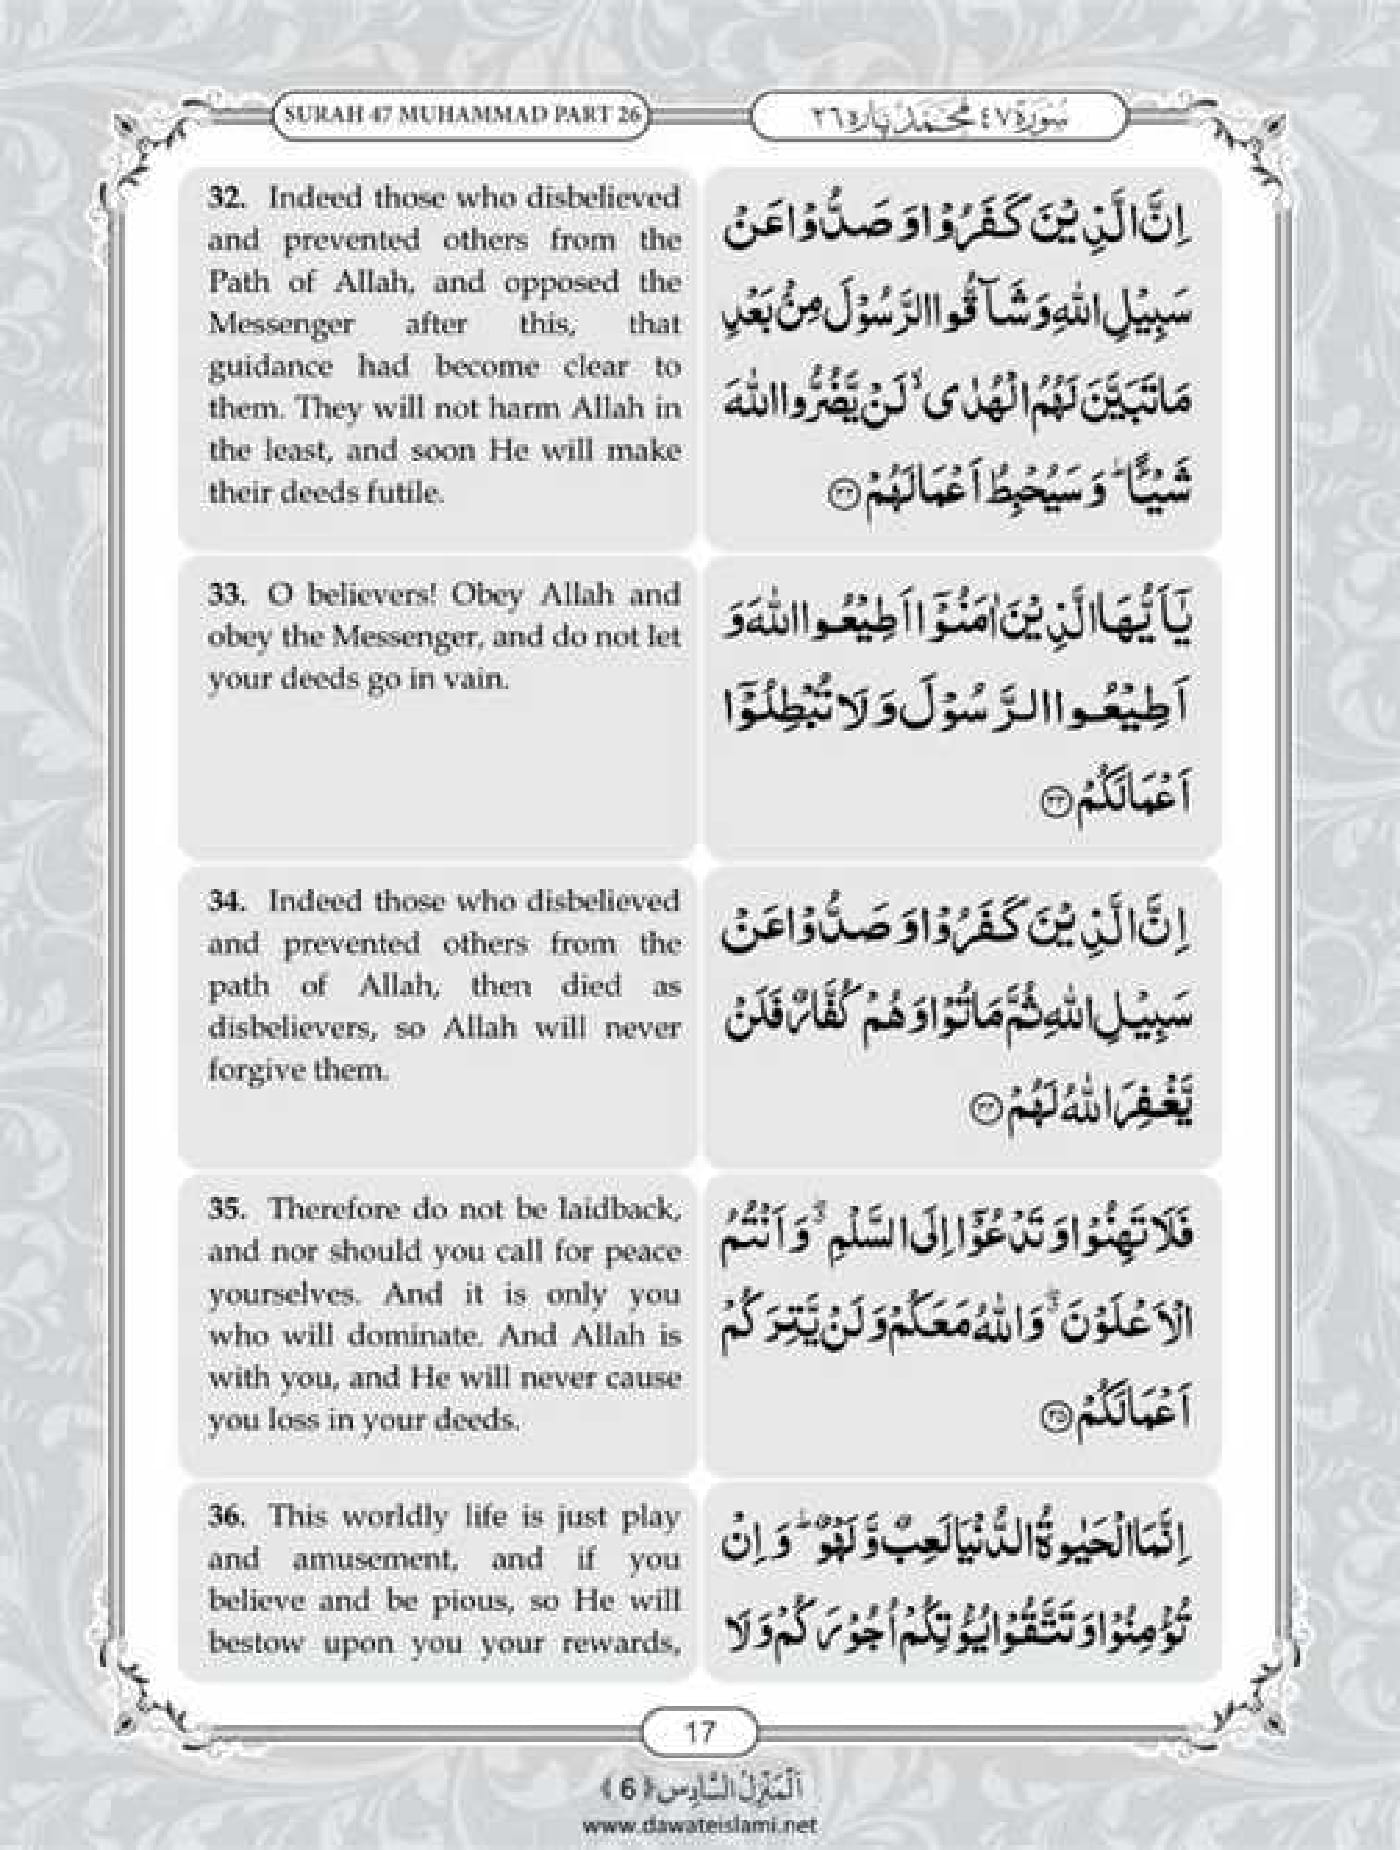 SURAH 47 MUHAMMAD PART 26
سُورَة ٤٧ مُحَمَّد پاره ٢٦
32. Indeed those who disbelieved
and prevented others from the
Path of Allah, and opposed the
Messenger after this, that
guidance had become clear to
them. They will not harm Allah in
the least, and soon He will make
their deeds futile.
اِنَّ الَّذِیْنَ كَفَرُوْا وَ صَدُّوْا عَنْ
سَبِیْلِ اللّٰهِ وَ شَآقُّوا الرَّسُوْلَ مِنْۢ بَعْدِ
مَا تَبَیَّنَ لَهُمُ الْهُدٰىۙ لَنْ یَّضُرُّوا اللّٰهَ
شَیْــٴًـاؕ وَ سَیُحْبِطُ اَعْمَالَهُمْ ﴿۳۲﴾
33. O believers! Obey Allah and
obey the Messenger, and do not let
your deeds go in vain.
یٰۤاَیُّهَا الَّذِیْنَ اٰمَنُوْۤا اَطِیْعُوا اللّٰهَ وَ
اَطِیْعُوا الرَّسُوْلَ وَ لَا تُبْطِلُوْۤا
اَعْمَالَكُمْ ﴿۳۳﴾
34. Indeed those who disbelieved
and prevented others from the
path of Allah, then died as
disbelievers, so Allah will never
forgive them.
اِنَّ الَّذِیْنَ كَفَرُوْا وَ صَدُّوْا عَنْ
سَبِیْلِ اللّٰهِ ثُمَّ مَاتُوْا وَ هُمْ كُفَّارٌ فَلَنْ
یَّغْفِرَ اللّٰهُ لَهُمْ ﴿۳۴﴾
35. Therefore do not be laidback,
and nor should you call for peace
yourselves. And it is only you
who will dominate. And Allah is
with you, and He will never cause
you loss in your deeds.
فَلَا تَهِنُوْا وَ تَدْعُوْۤا اِلَى السَّلْمِ ﳓ وَ اَنْتُمُ
الْاَعْلَوْنَ ﳓ وَ اللّٰهُ مَعَكُمْ وَ لَنْ یَّتِرَكُمْ
اَعْمَالَكُمْ ﴿۳۵﴾
36. This worldly life is just play
and amusement, and if you
believe and be pious, so He will
bestow upon you your rewards,
اِنَّمَا الْحَیٰوةُ الدُّنْیَا لَعِبٌ وَّ لَهْوٌؕ وَ اِنْ
تُؤْمِنُوْا وَ تَتَّقُوْا یُؤْتِكُمْ اُجُوْرَكُمْ وَ لَا
17
اَلْمَنْزِلُ السَّادِس ﴿6﴾
www.dawateislami.net